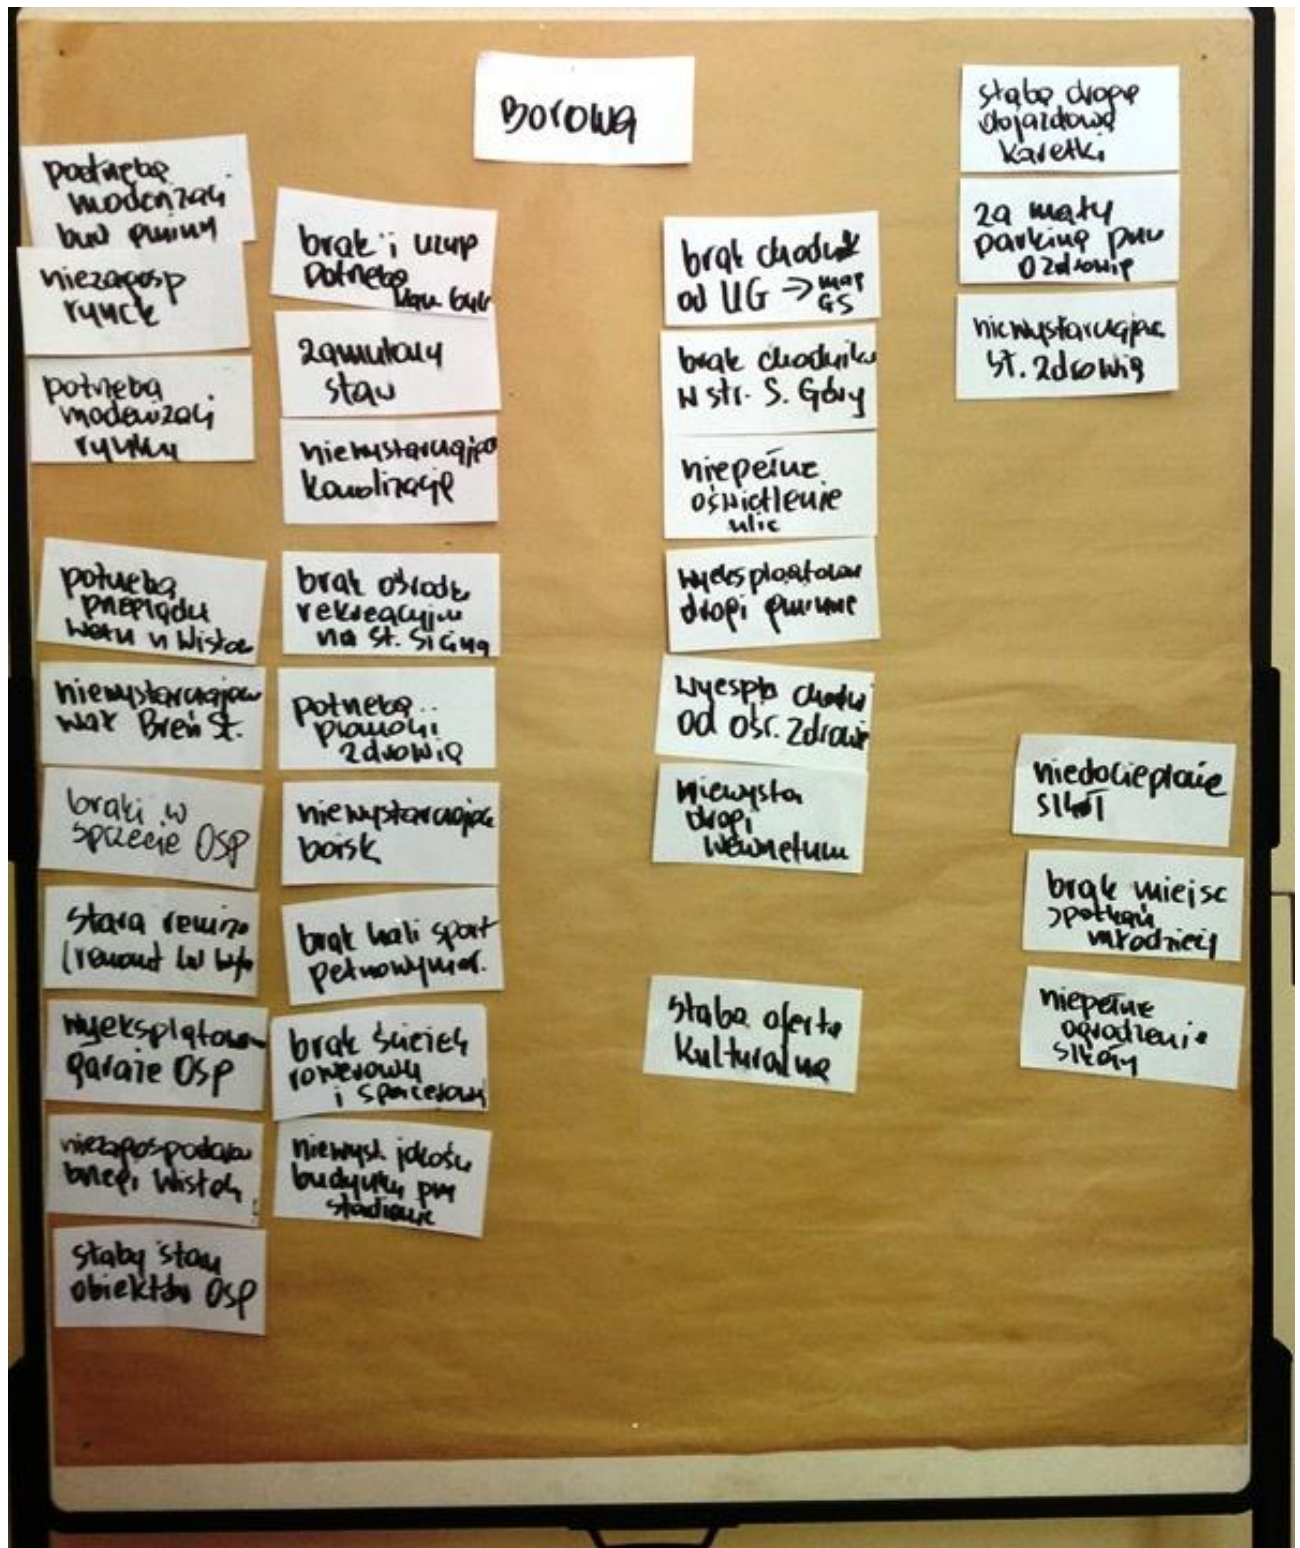 Borowa
potrzeba
modernizacji
bud gminy
niezagosp
rynek
potrzeba
modernizacji
rynku
potrzeba
przeglądu
wału n Wisłoc
niewystarczająca
wał Breń St.
braki w
sprzęcie OSP
stara remiza
(remont
wyeksplatowa
garaże OSP
niezagospodarow
brzegi Wisłoki
słaby stan
obiektów OSP
brak i uzup
potrzeba
zamulony
staw
niewystarczająca
kanalizacja
brak ośrodk
rekreacyjn
na st.
potrzeba
zdrowia
niewystarczające
boisk
brak hali sport
pełnowymiar.
brak ścieżek
rowerowych
i spacerowych
niewyst. jakości
budynku przy
stadionie
brak chodnik
od UG → GS
brak chodnika
w str. S. Góry
niepełne
oświetlenie
ulic
wyeksploatowan
drogi gminne
wyespło chodni
od ośr. Zdrowia
niewysta
drogi
wewnętrzn
słaba oferta
kulturalna
słaba droga
dojazdowa
karetki
za mały
parking przy
O zdrowia
niewystarczając
st. zdrowia
niedocieplanie
szkół
brak miejsc
spotkań
młodzieży
niepełne
ogrodzenie
szkoły